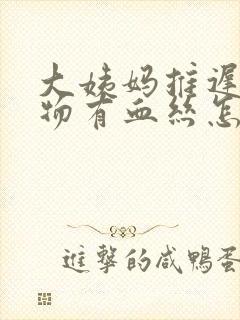 大姨妈推迟
物有血丝怎
进擊的咸鸭蛋